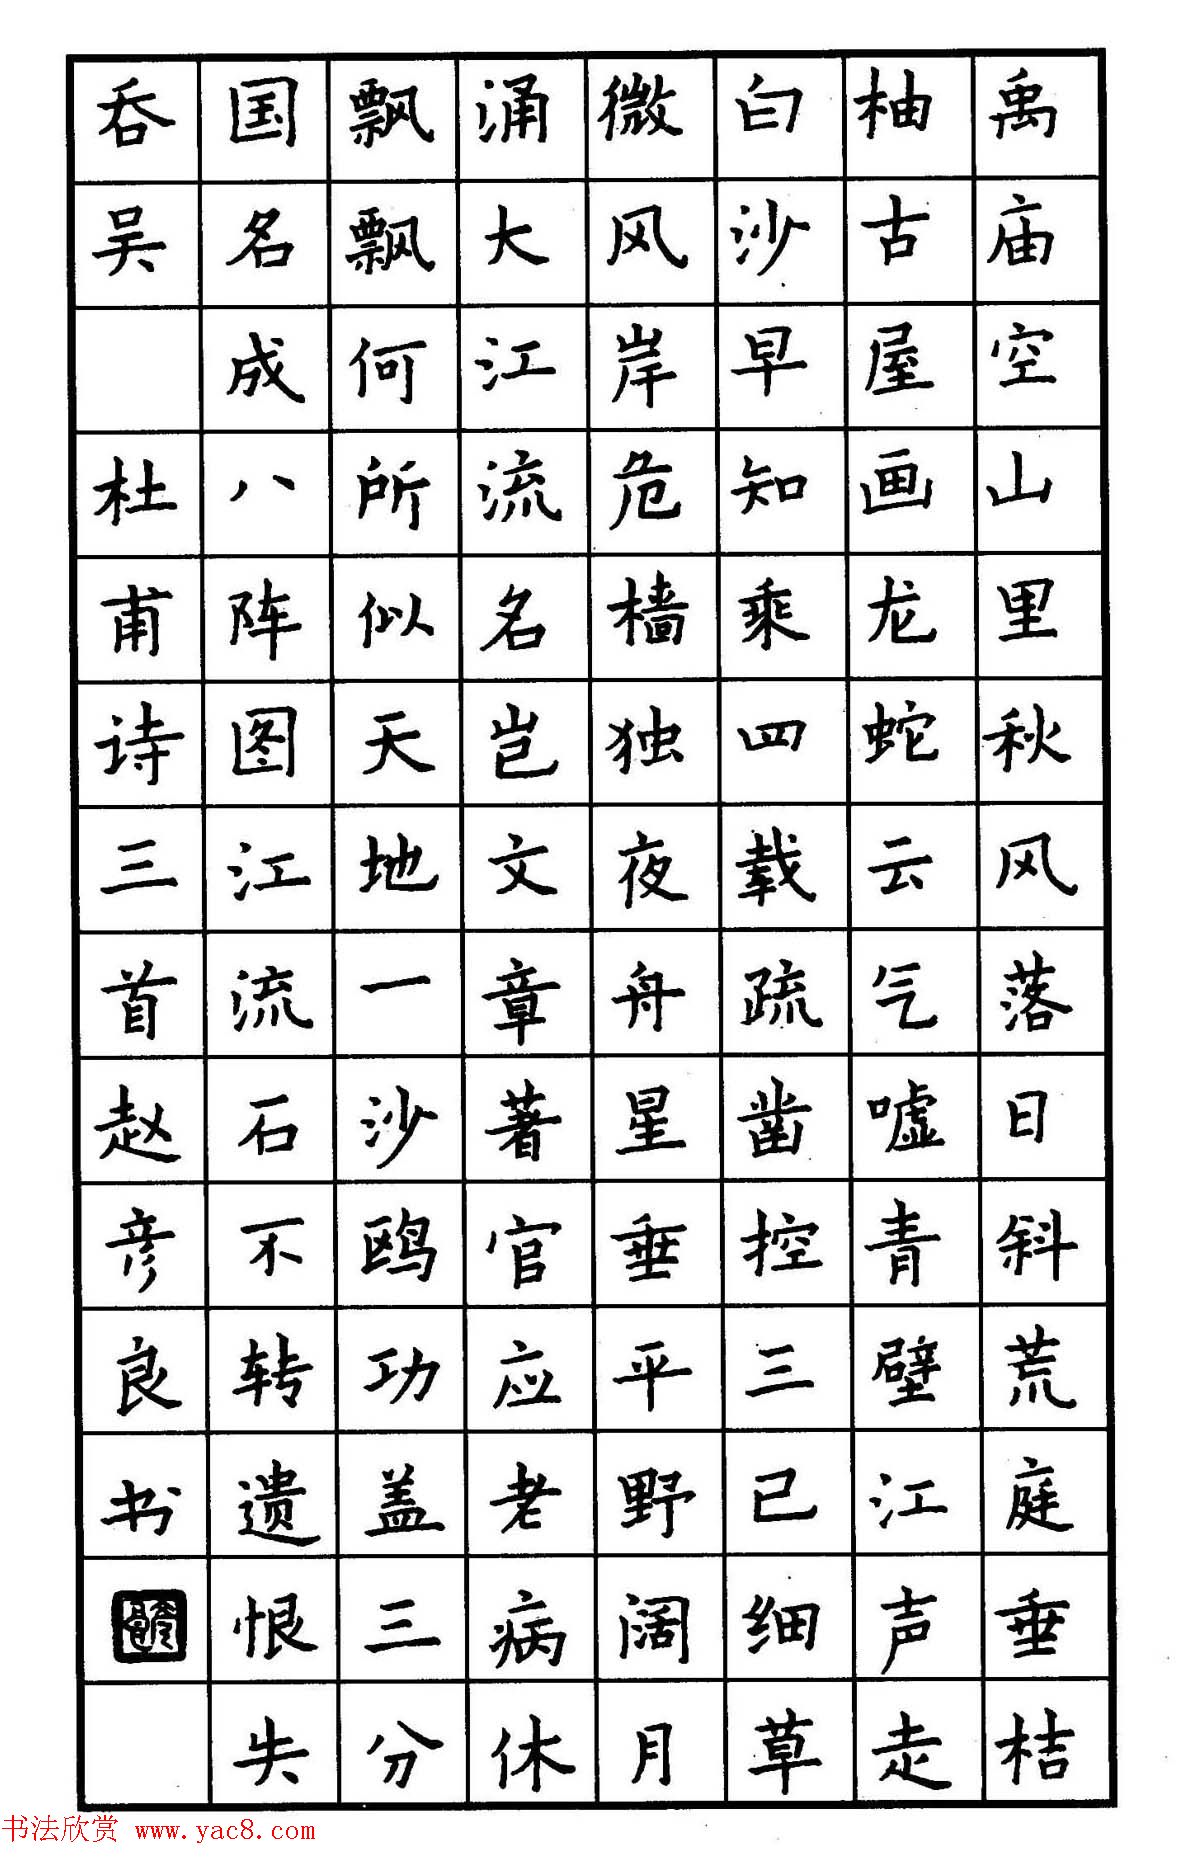 禹庙空山里秋风落日斜荒庭垂桔
柚古屋画龙蛇云气嘘青壁江声走
白沙早知乘四载疏凿控三巴细草
微风岸危樯独夜舟星垂平野阔月
涌大江流名岂文章著官应老病休
飘飘何所似天地一沙鸥功盖三分
国名成八阵图江流石不转遗恨失
吞吴 杜甫诗三首赵彦良书
书法欣赏 www.yac8.com